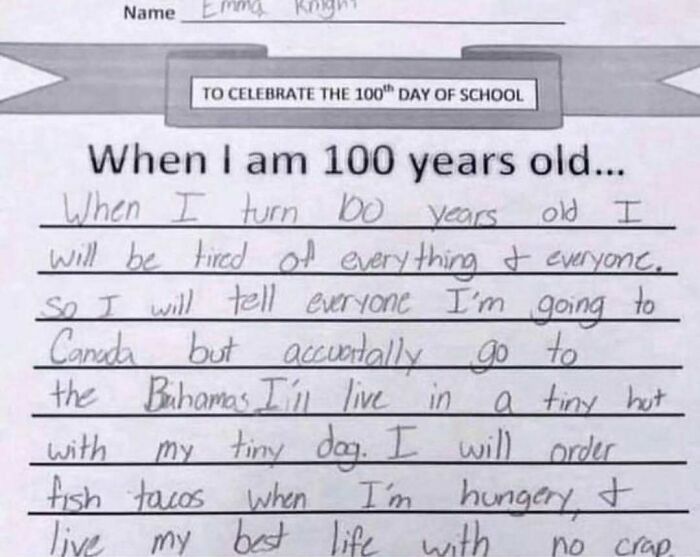 Name Emma Knight
TO CELEBRATE THE 100th DAY OF SCHOOL
When I am 100 years old...
When I turn 100 years old I
will be tired of everything & everyone.
So I will tell everyone I'm going to
Canada but accuatally go to
the Bahamas I'ill live in a tiny hut
with my tiny dog. I will order
fish tacos when I'm hungery, &
live my best life with no crap.